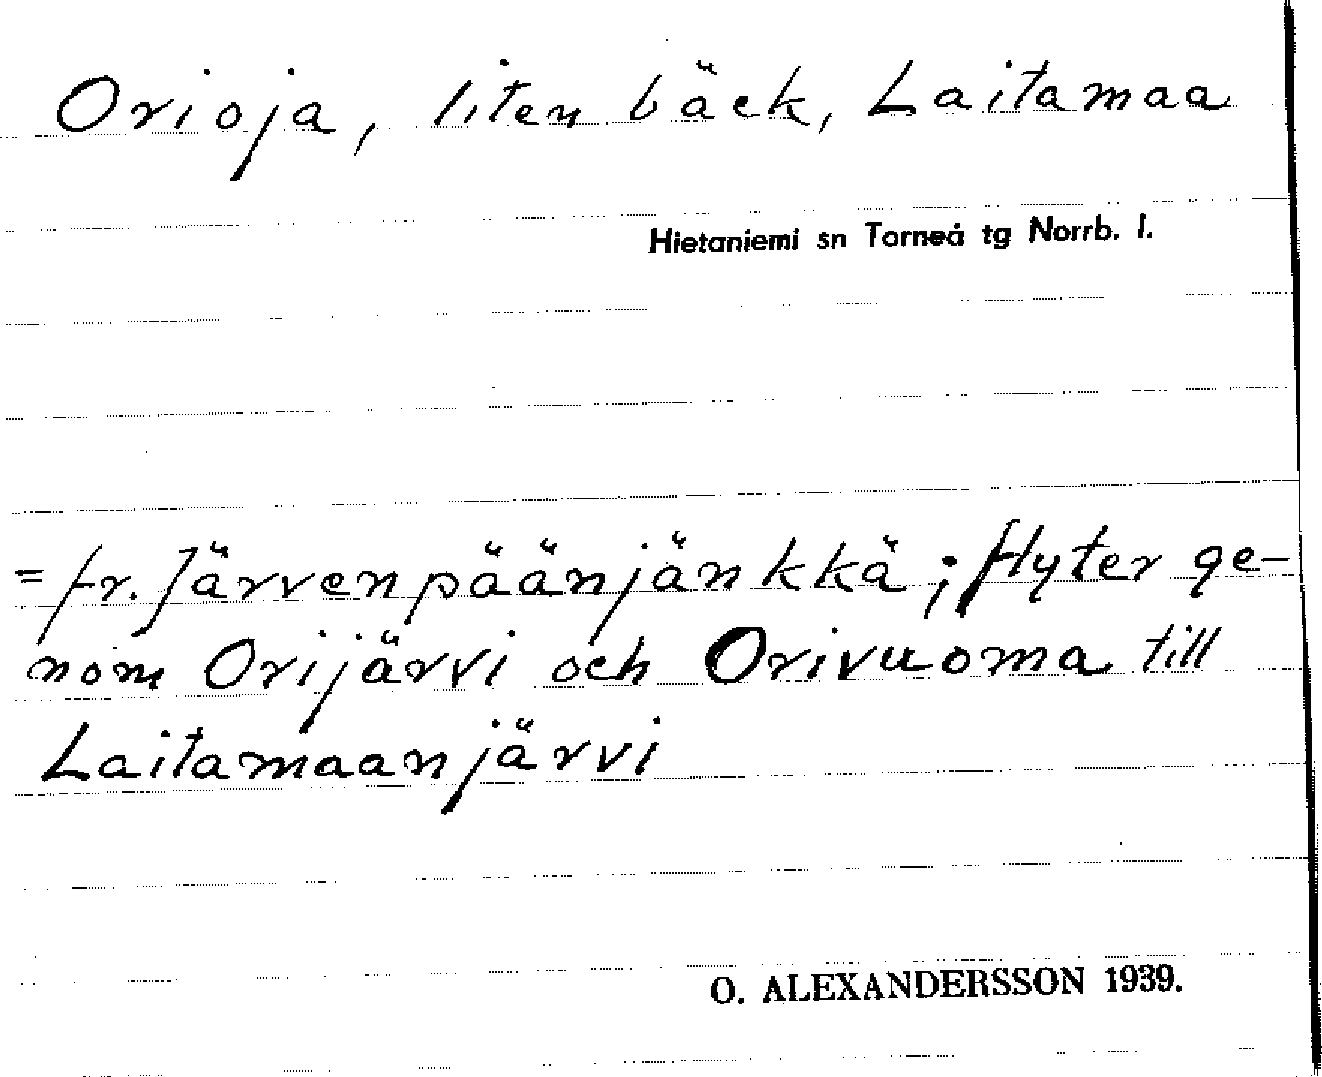 Orioja, liten bäck, Laitamaa
Hietaniemi sn Torneå tg Norrb. l.
= fr. Järvenpäänjänkkä; flyter ge-
nom Orijärvi och Orivuoma till
Laitamaanjärvi
O. ALEXANDERSSON 1939.